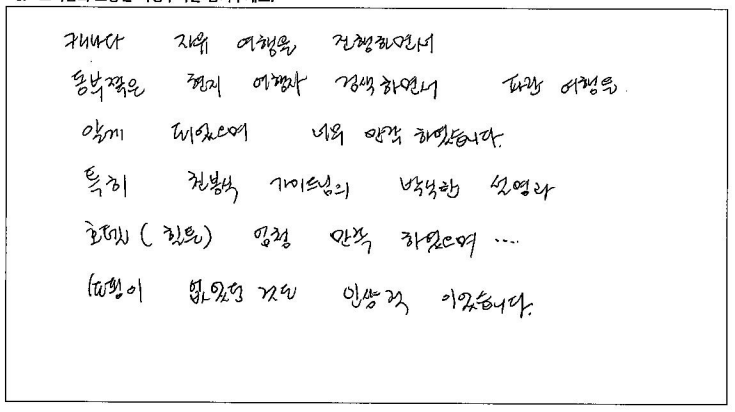 캐나다 자유 여행을 진행하면서
동부쪽은 현지 여행사 검색하면서 파란 여행을
알게 되었으며 너무 만족 하였습니다.
특히 천봉석 가이드님의 박식한 설명과
호텔(힐튼) 엄청 만족 하였으며 ....
이 없었던 것도 인상적 이었습니다.